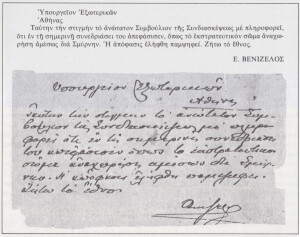 Ὑπουργεῖον Ἐξωτερικῶν
Ἀθήνας
Ταύτην τὴν στιγμὴν τὸ ἀνώτατον Συμβούλιον τῆς Συνδιασκέψεως μὲ πληροφορεῖ,
ὅτι ἐν τῇ σημερινῇ συνεδριάσει του ἀπεφάσισεν, ὅπως τὸ ἐκστρατευτικὸν σῶμα ἀναχω-
ρήσῃ ἀμέσως διὰ Σμύρνην. Ἡ ἀπόφασις ἐλήφθη παμψηφεί. Ζήτω τὸ Ἔθνος.
Ε. ΒΕΝΙΖΕΛΟΣ
Υπουργείον Εξωτερικών
Αθήνας
ταύτην την στιγμήν το ανώτατον Συμ-
βούλιον της Συνδιασκέψεως με πληρο-
φορεί ότι εν τη σημερινή συνεδριάσει
του απεφάσισεν όπως το εκστρατευτικόν
σώμα αναχωρήση αμέσως διά Σμύρ-
νην. Η απόφασις ελήφθη παμψηφεί.
Ζήτω το έθνος